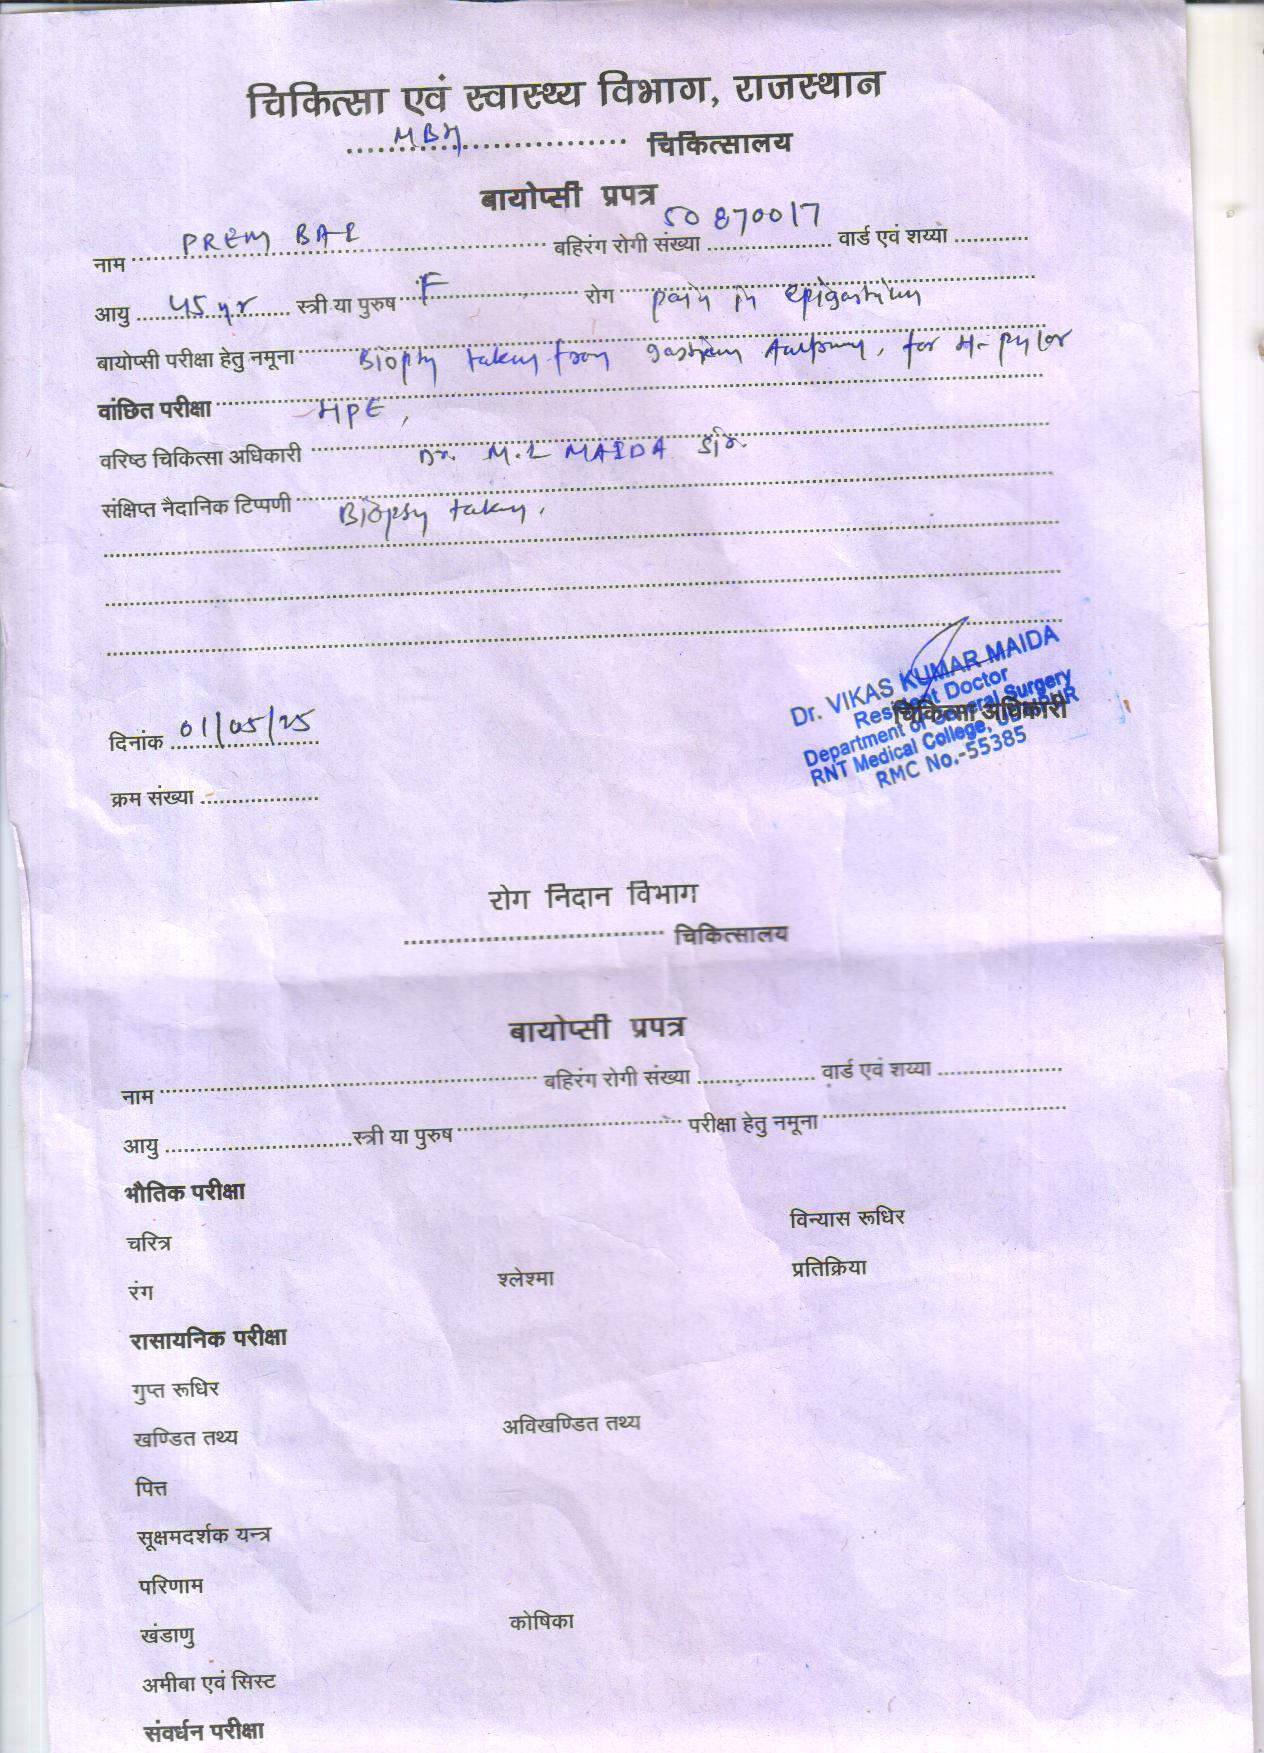 चिकित्सा एवं स्वास्थ्य विभाग, राजस्थान
MBH चिकित्सालय
बायोप्सी प्रपत्र
नाम PREM BAI बहिरंग रोगी संख्या 50870017 वार्ड एवं शय्या
आयु 45 yr स्त्री या पुरुष F रोग pain in epigastrium
बायोप्सी परीक्षा हेतु नमूना Biopsy taken from gastric Antrum, for H-pylor
वांछित परीक्षा HPE,
वरिष्ठ चिकित्सा अधिकारी Dr. M.L MAIDA Sir
संक्षिप्त नैदानिक टिप्पणी Biopsy taken.
Dr. VIKAS KUMAR MAIDA
Resident Doctor
चिकित्सा अधिकारी
Department of General Surgery
RNT Medical College, UDAIPUR
RMC No.-55385
दिनांक 01/05/25
क्रम संख्या
रोग निदान विभाग
चिकित्सालय
बायोप्सी प्रपत्र
नाम बहिरंग रोगी संख्या वार्ड एवं शय्या
आयु स्त्री या पुरुष परीक्षा हेतु नमूना
भौतिक परीक्षा
चरित्र विन्यास रूधिर
रंग श्लेश्मा प्रतिक्रिया
रासायनिक परीक्षा
गुप्त रूधिर
खण्डित तथ्य अविखण्डित तथ्य
पित्त
सूक्षमदर्शक यन्त्र
परिणाम
खंडाणु कोषिका
अमीबा एवं सिस्ट
संवर्धन परीक्षा